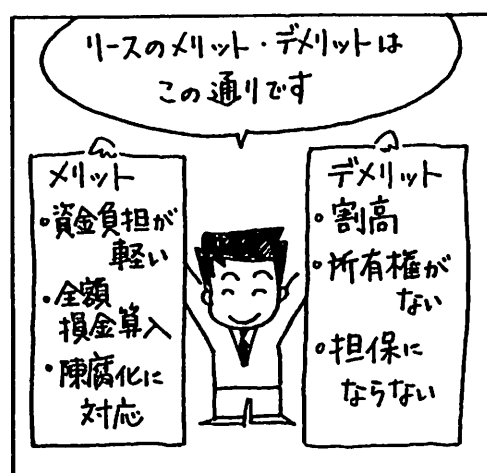 リースのメリット・デメリットは
この通りです
メリット
・資金負担が
軽い
・全額
損金算入
・陳腐化に
対応
デメリット
・割高
・所有権が
ない
・担保に
ならない